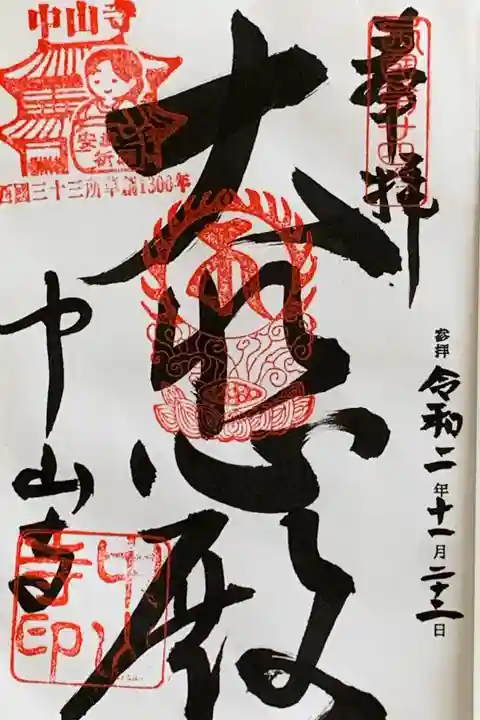 奉拝
西国第廿四番
参拝 令和二年十一月二十二日
大悲殿
中山寺
安産
祈願
西國三十三所草創1300年
中山寺
中山寺印